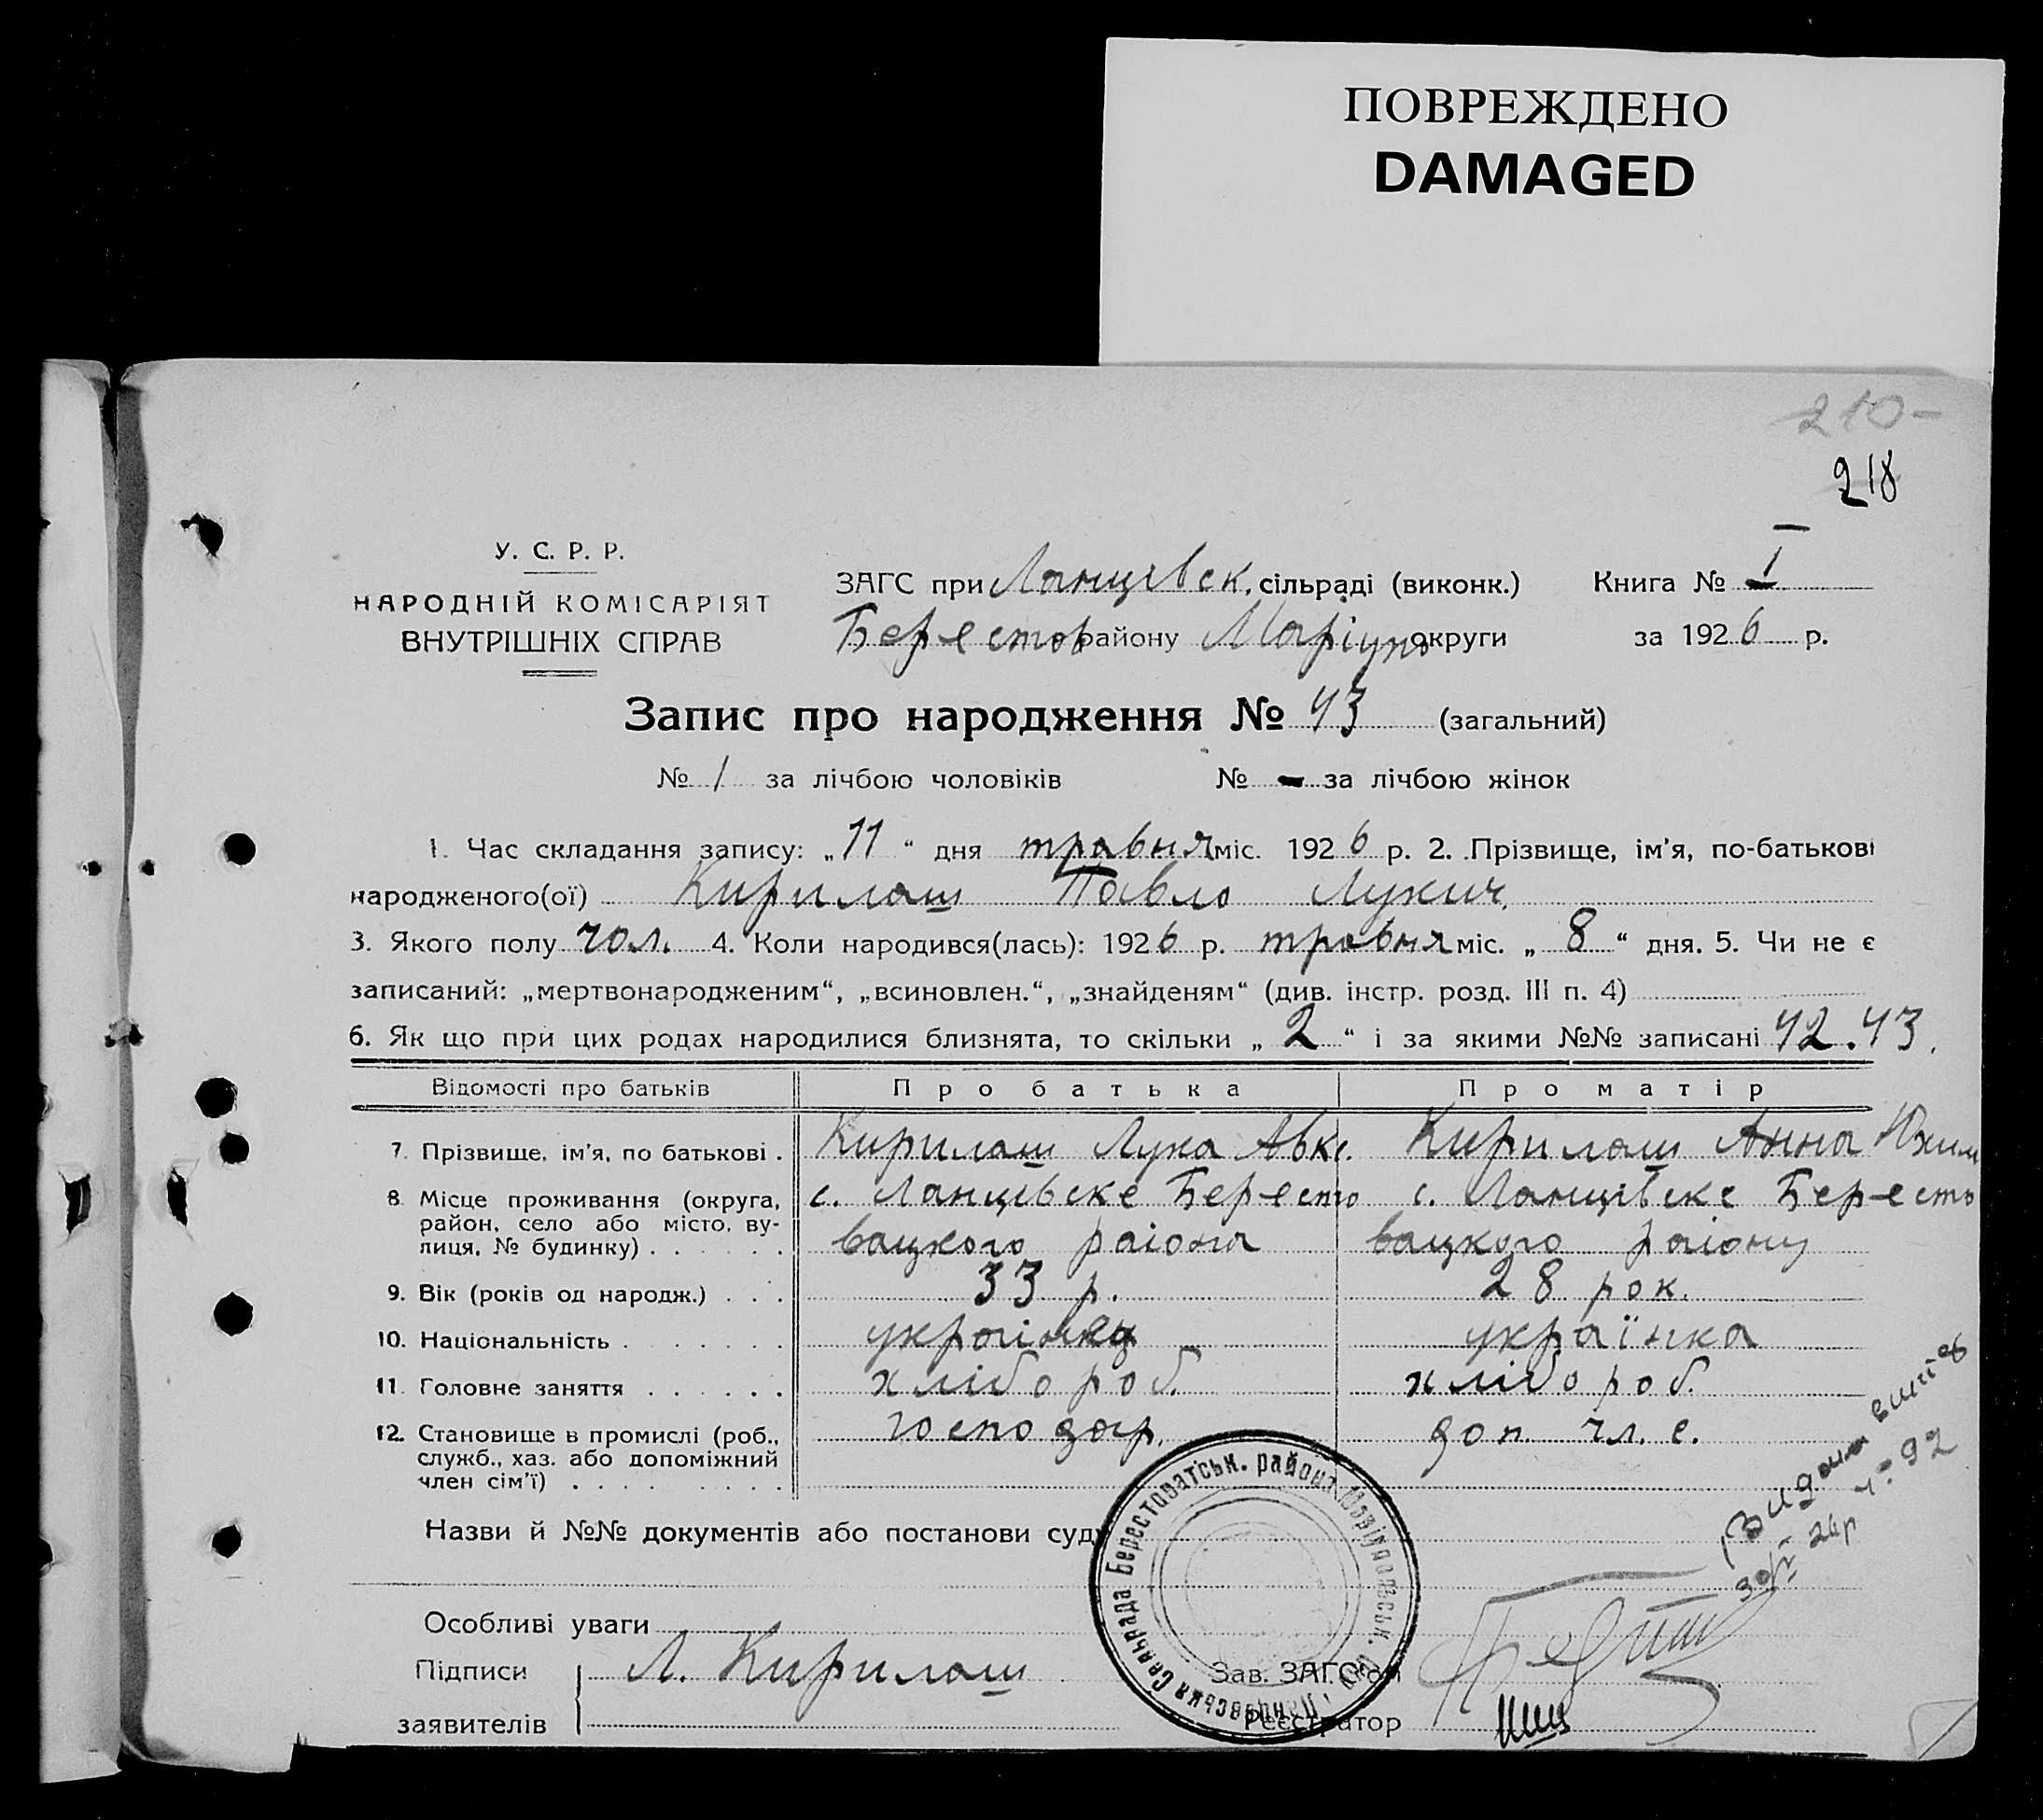 ПОВРЕЖДЕНО
DAMAGED
210-
218
У. С. Р. Р.
НАРОДНІЙ КОМІСАРІЯТ
ВНУТРІШНІХ СПРАВ
ЗАГС при Ланцівск. сільраді (виконк.) Книга № I
Берестов району Маріуп округи за 1926 р.
Запис про народження № 43 (загальний)
№ 1 за лічбою чоловіків № - за лічбою жінок
1. Час складання запису: „11“ дня травня міс. 1926 р. 2. Прізвище, ім'я, по-батькові
народженого(ої) Кирилаш Павло Лукич.
3. Якого полу чол. 4. Коли народився(лась): 1926 р. травня міс. „8“ дня. 5. Чи не є
записаний: „мертвонародженим“, „всиновлен.“, „знайденям“ (див. інстр. розд. III п. 4)
6. Як що при цих родах народилися близнята, то скільки „2“ і за якими №№ записані 42.43.
Відомості про батьків Про батька Про матір
7. Прізвище, ім'я, по батькові . Кирилаш Лука Авкс. Кирилаш Анна Юхим
8. Місце проживання (округа, с. Ланцівске Бересто с. Ланцівске Бересто
район, село або місто, ву-
лиця, № будинку) . . . . . . вацкого раіона вацкого раіону
9. Вік (років од народж.) . . . 33 р. 28 рок.
10. Національність . . . . . . . украінец украінка
11. Головне заняття . . . . . . хлібороб. хлібороб.
12. Становище в промислі (роб., господар. доп. чл. с.
служб., хаз. або допоміжний
член сім'ї) . . . . . . . . .
Видано витяг
№ 92
Назви й №№ документів або постанови суду
Особливі уваги
Підписи Л. Кирилаш Зав. ЗАГС'ом
заявителів Реєстратор
Сільрада Берестоватськ. района Маріупольськ. окр.